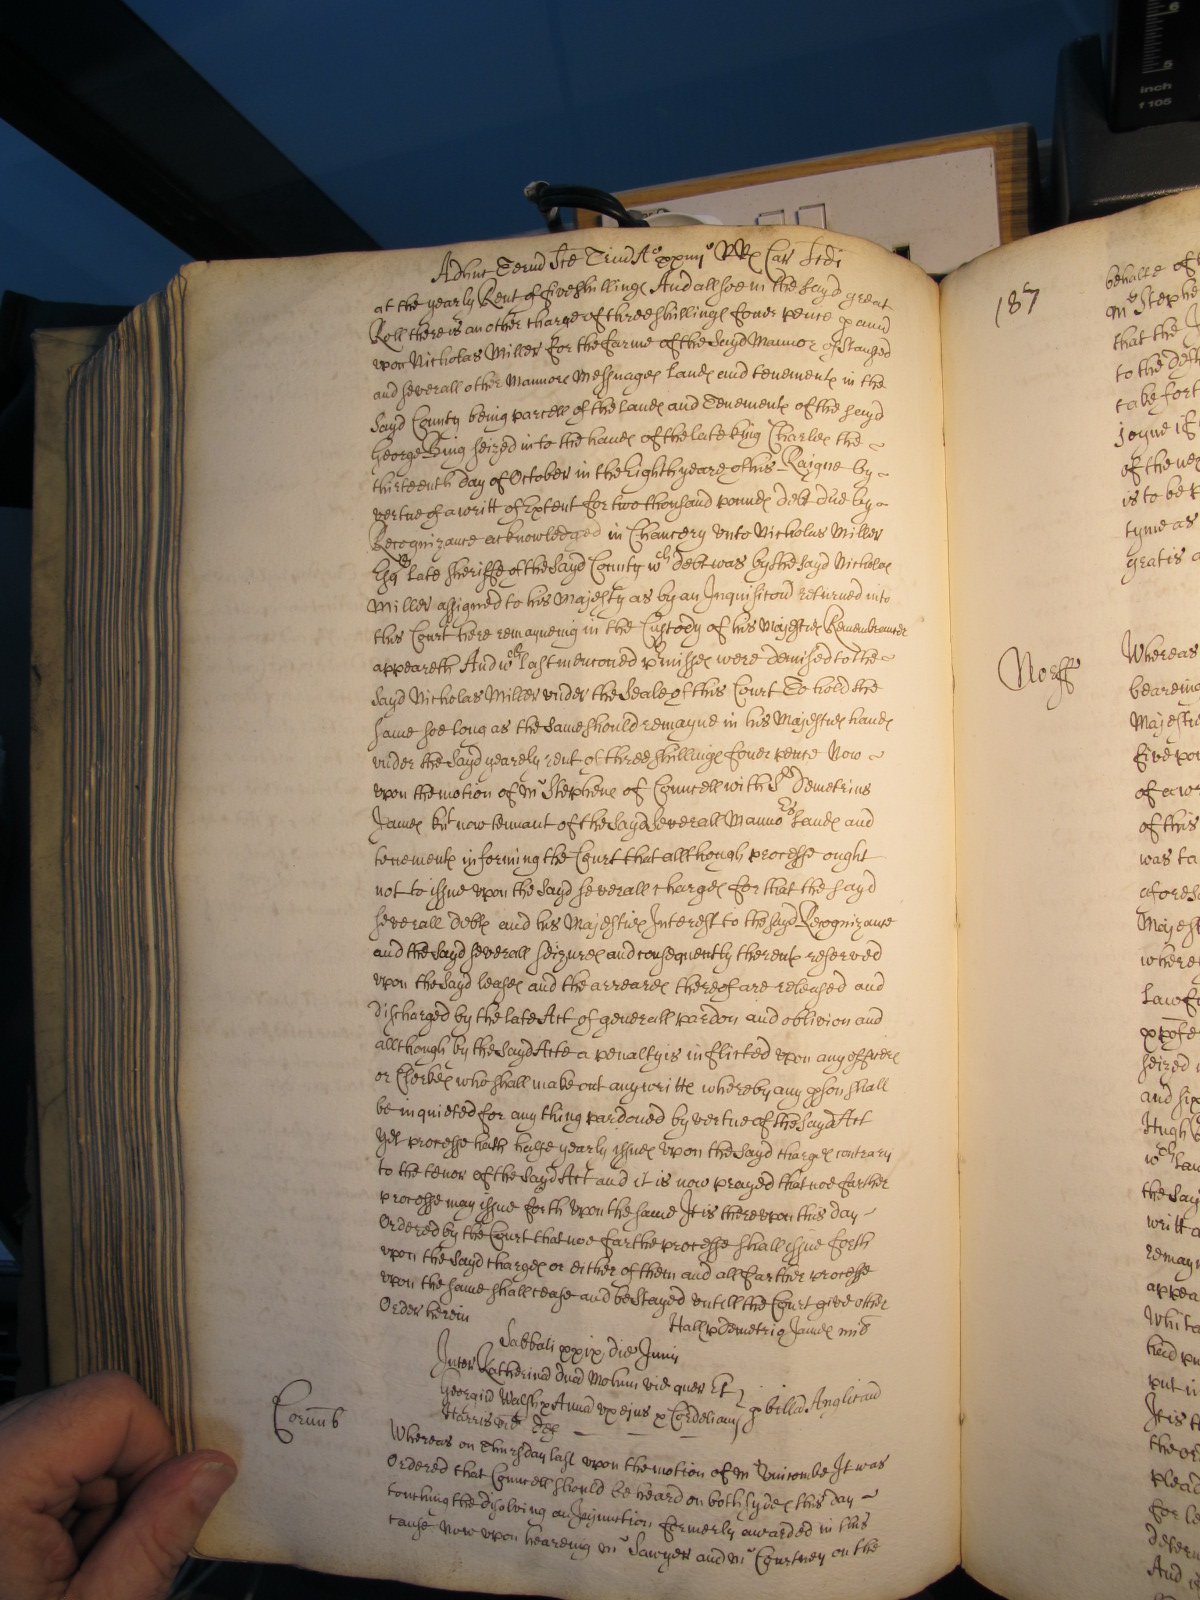 Adhuc Termō Sce Trin Ao xxiiijo RRx Car Scdi
at the yearly Rent of five shillings And allsoe in the sayd great
Roll there is another charge of three shillings fower pence p annū
vpon Nicholas Miller for the farme of the sayd Mannor of
and severall other Mannors Messuages lands and tenements in the
Sayd County being parcell of the lands and Tenements of the sayd
George Bing seized into the hands of the late King Charles the
thirteenth day of October in the Eighth yeare of his Raigne by
vertue of a writt of Extent for two thousand pounds debt due by
Recognizance acknowledged in Chancery vnto Nicholas Miller
Esqr late sheriffe of the sayd County wch debt was by the sayd Nicholas
Miller assigned to his Majesty as by an Inquisicōn returned into
this Court here remayneing in the Custody of his Majesties Remembrancer
appeareth And wch last mencōned pmisses were demised to the
Sayd Nicholas Miller vnder the Seale of this Court To hold the
same soe long as the same should remayne in his Majesties hands
vnder the sayd yearely rent of three shillings fower pence Now
vpon the motion of Mr Stephens of Councell with Sr Demetrius
James kt now tennant of the sayd severall Mannors Lands and
tenements informing the Court that allthough processe ought
not to issue vpon the sayd severall charges for that the sayd
severall debts and his Majesties Interest to the sayd Recognizance
and the sayd severall seizures and consequently the rents reserved
vpon the sayd leases and the arreares thereof are released and
discharged by the late Act of generall pardon and oblivion and
allthough by the sayd Acte a penalty is inflicted vpon any officers
or Clerkes who shall make out any writts whereby any pson shall
be inquieted for any thing pardoned by vertue of the sayd Act
Yet processe hath halfe yearly issued vpon the sayd charges contrary
to the tenor of the sayd Act and it is now prayed that noe farther
processe may issue forth vpon the same It is therevpon this day
Ordered by the Court that noe farther processe shall issue forth
vpon the sayd charges or either of them and all farther processe
vpon the same shall cease and be stayed vntill the Court give other
Order herein
Hall p Demetrio James mil
Sabbati xxix die Junij
Inter Katherinā Dnā Mohun vid quer Et
Georgiū Walsh & Annā vx ejus & Cordeliam p billā Anglicanā
Harris vid Def
Cornub
Whereas on Thursday last vpon the motion of Mr Vincombe It was
Ordered that Councell should be heard on both sydes this day
touching the disolving an Injunction formerly awarded in this
cause Now vpon heareing Mr Sawyer and Mr Courtney on the
187
behalfe of
Mr Stephe
that the
to the
to be fort
joyne is
of the ne
is to be
tyme as
gratis
Norff
Whereas
beareing
Majesti
five po
of a wr
of this
was ta
aforesa
Majest
where
Law
seized
and
Hugh
wch Lan
the Say
writt
remayn
appea
Whit
had
put in
It is
the
plead
for
determ
And
inch
f 105
6
5